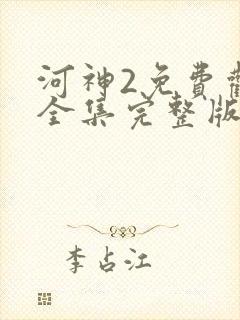 河神2免費
全集完整版
李占江